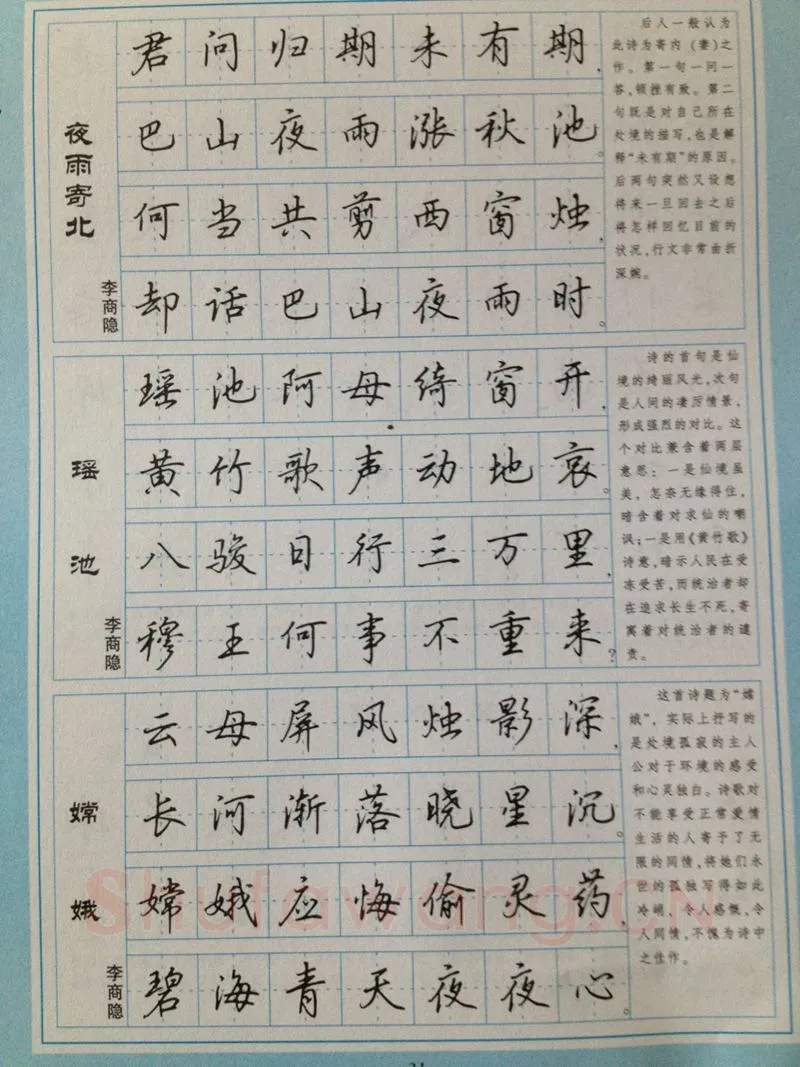 夜雨寄北
李商隐
君问归期未有期,
巴山夜雨涨秋池。
何当共剪西窗烛,
却话巴山夜雨时。
后人一般认为
此诗为寄内（妻）之
作。第一句一问一
答,顿挫有致。第二
句既是对自己所在
处境的描写,也是解
释“未有期”的原因。
后两句突然又设想
将来一旦回去之后
将怎样回忆目前的
状况,行文非常曲折
深婉。
瑶池
李商隐
瑶池阿母绮窗开,
黄竹歌声动地哀。
八骏日行三万里,
穆王何事不重来?
诗的首句是仙
境的绮丽风光,次句
是人间的凄厉情景,
形成强烈的对比。这
个对比兼含着两层
意思：一是仙境虽
美，怎奈无缘得住,
暗含着对求仙的嘲
讽;一是用《黄竹歌》
诗意,暗示人民在受
冻受苦,而统治者却
在追求长生不死,寄
寓着对统治者的谴
责。
嫦娥
李商隐
云母屏风烛影深,
长河渐落晓星沉。
嫦娥应悔偷灵药,
碧海青天夜夜心。
这首诗题为“嫦
娥”，实际上抒写的
是处境孤寂的主人
公对于环境的感受
和心灵独白。诗歌对
不能享受正常爱情
生活的人寄予了无
限的同情,将她们永
世的孤独写得如此
冷峭、令人感慨,令
人同情,不愧为诗中
之佳作。